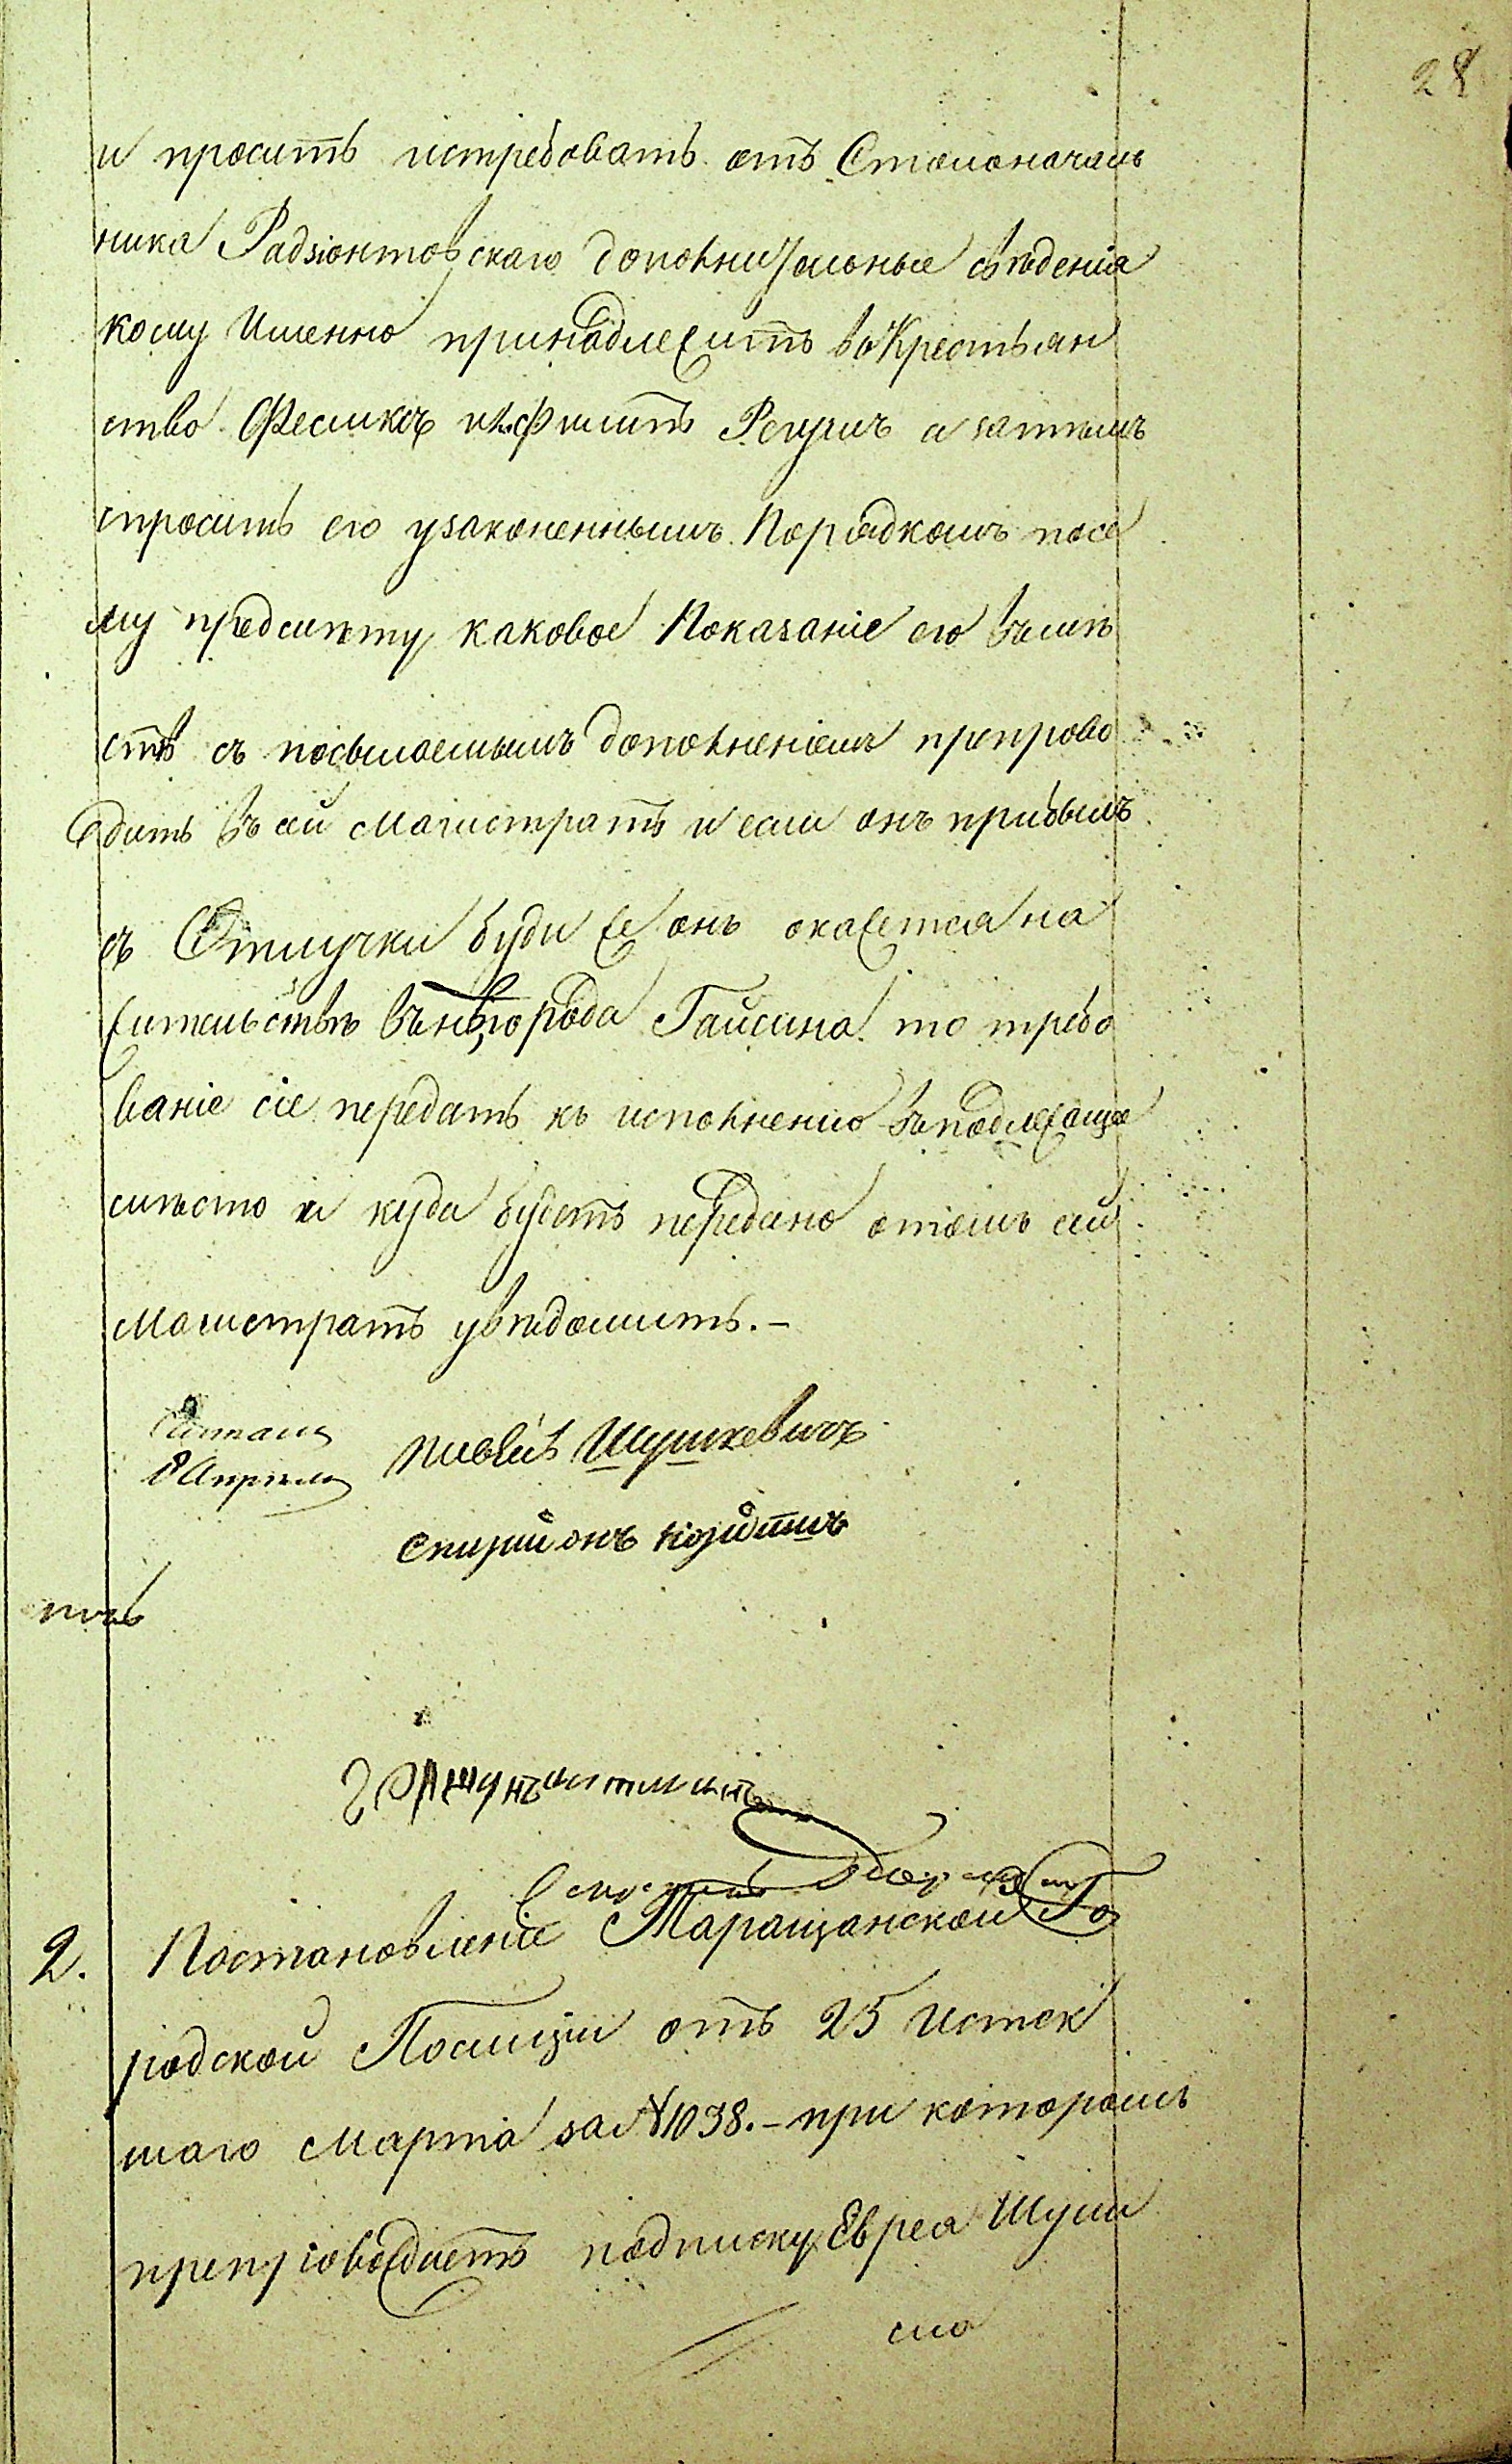 28
и просить истребовать отъ Столоначаль
ника Радзіонтовскаго дополнительные свѣденія
кому Именно принадлежитъ во Крестьян
ство Феликсъ Реутъ а затѣмъ
спросить его узаконеннымъ Порядкомъ посе
му предмѣту каковое Показаніе его въмѣ
стѣ съ посылаемымъ дополненіемъ препрово
дить въ сей Магистратъ и если онъ прибылъ
съ Отлучки буди же онъ окажется на
жительствѣ внѣ города Гайсина то требо
ваніе сіе передать къ исполненію въ подлежаще
мѣсто и куда будетъ передано отомъ сей
Магистратъ увѣдомить.-
Читалъ
8 Апрѣля
Шушкевичъ
Спиридонъ
2. Постановленіе Таращанской Го
родской Полиціи отъ 25 Истек
шаго Марта за № 1038.- при которомъ
препровождаетъ подписку Еврея Шули